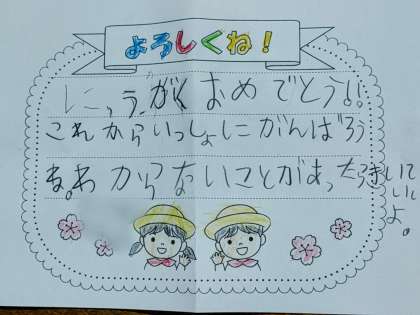 よろしくね！
にゅうがくおめでとう!!
これからいっしょにがんばろう
ね。わからないことがあったらきいて
いい
よ。